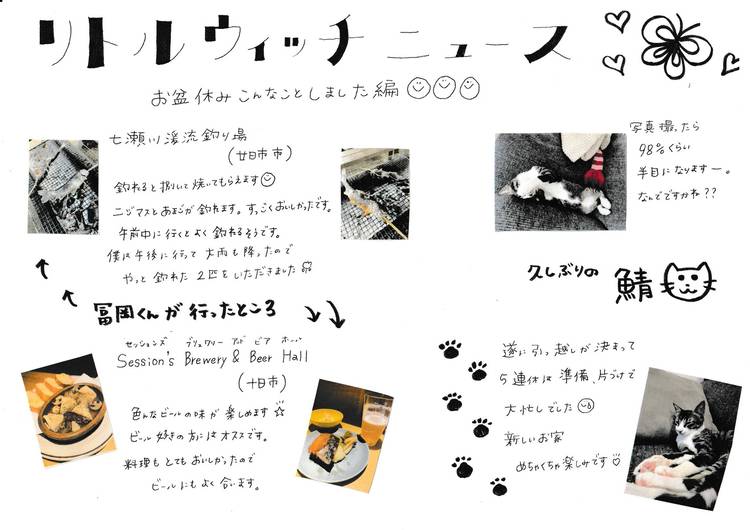 リトルウィッチニュース
お盆休みこんなことしました編
七瀬川渓流釣り場
(廿日市市)
釣れると捌いて焼いてもらえます
ニジマスとあまごが釣れます。すっごくおいしかったです。
午前中に行くとよく釣れるそうです。
僕は午後に行って大雨も降ったので
やっと釣れた2匹をいただきました
冨岡くんが行ったところ
セッションズ ブリュワリー アンド ビア ホール
Session's Brewery & Beer Hall
(十日市)
色んなビールの味が楽しめます☆
ビール好きの方にはオススメです。
料理もとてもおいしかったので
ビールにもよく合います。
写真撮ったら
98%くらい
半目になりますー。
なんでですかね??
久しぶりの 鯖
遂に引っ越しが決まって
5連休は準備、片づけで
大忙しでした
新しいお家
めちゃくちゃ楽しみです♡